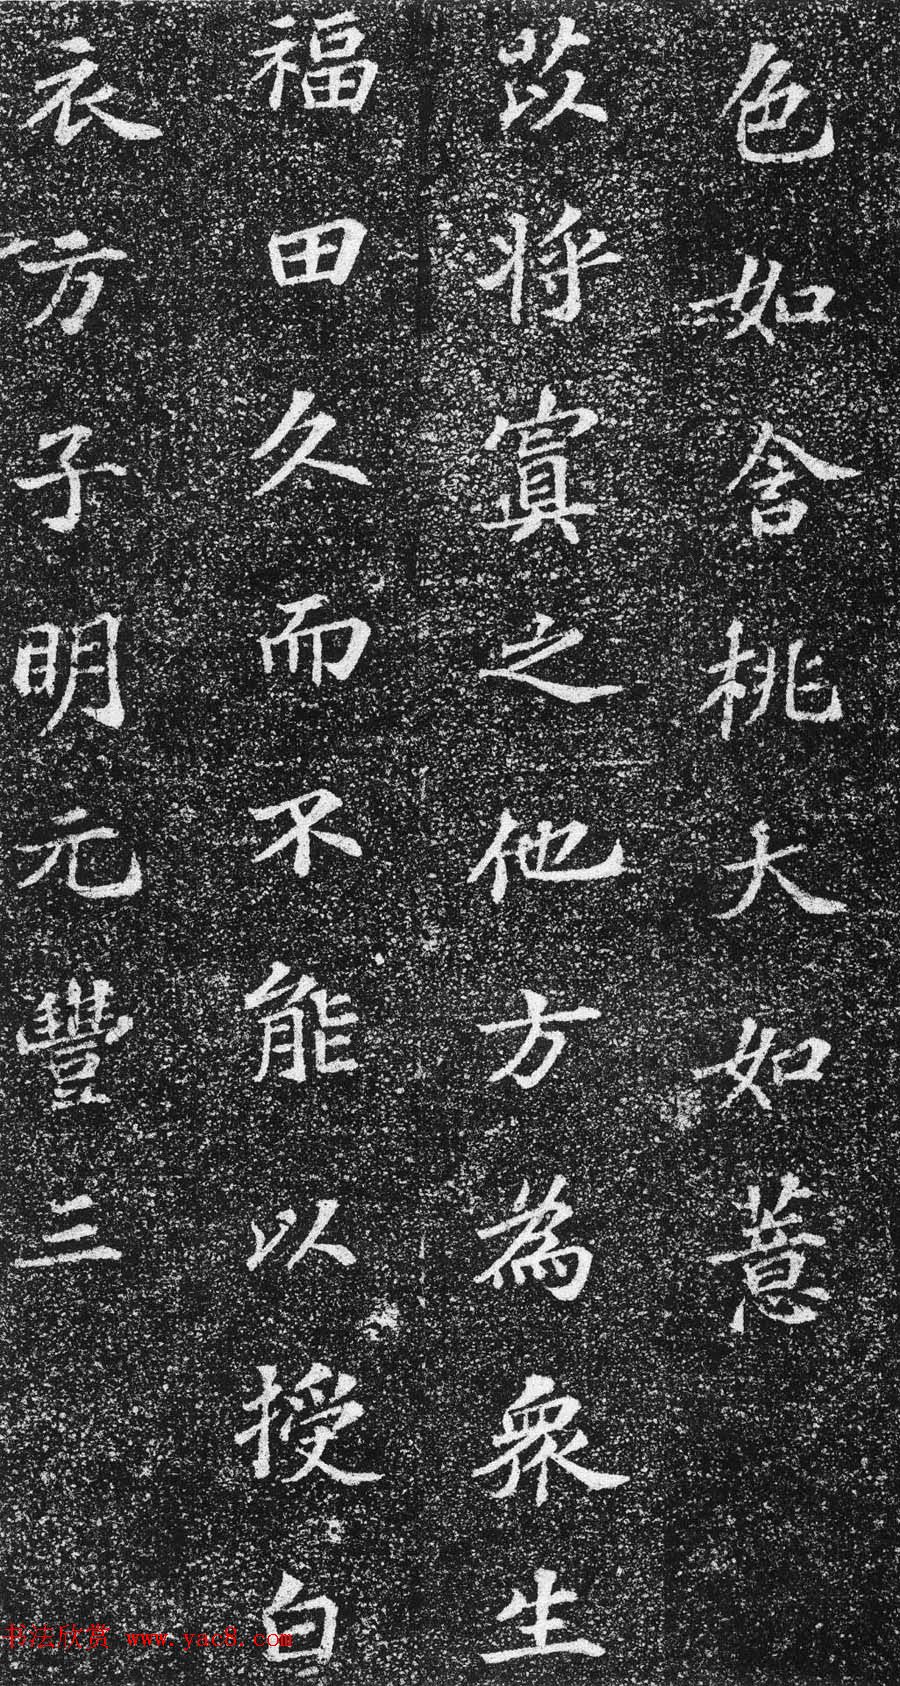 色如含桃大如薏
苡將寘之他方為衆生
福田久而不能以授白
衣方子明元豐三
书法欣赏 www.yac8.com